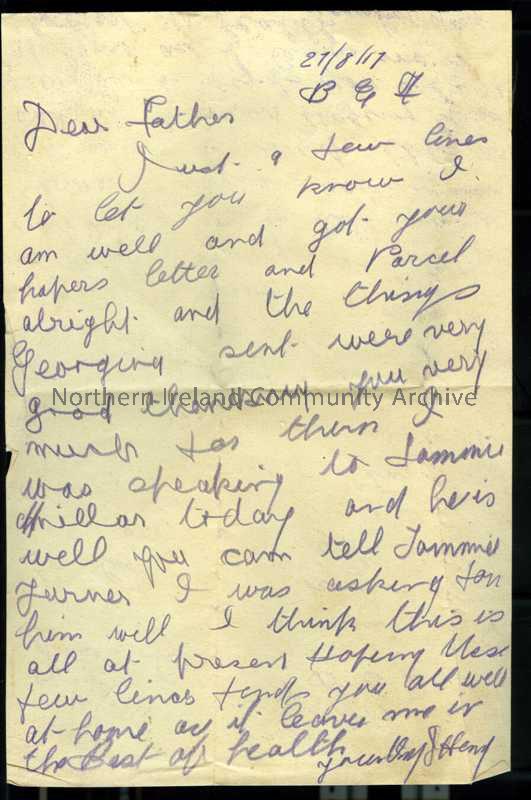 27/8/17
B E F
Dear Father
Just a few lines
to let you know I
am well and got your
papers letter and Parcel
alright and the things
Georgina sent were very
good thank you very
Northern Ireland Community Archive
much for them I
was speaking to Sammie
Millar today and he is
well you can tell Sammie
Turner I was asking for
him well I think this is
all at present Hoping these
few lines finds you all well
at home as it leaves me in
the Best of health
your